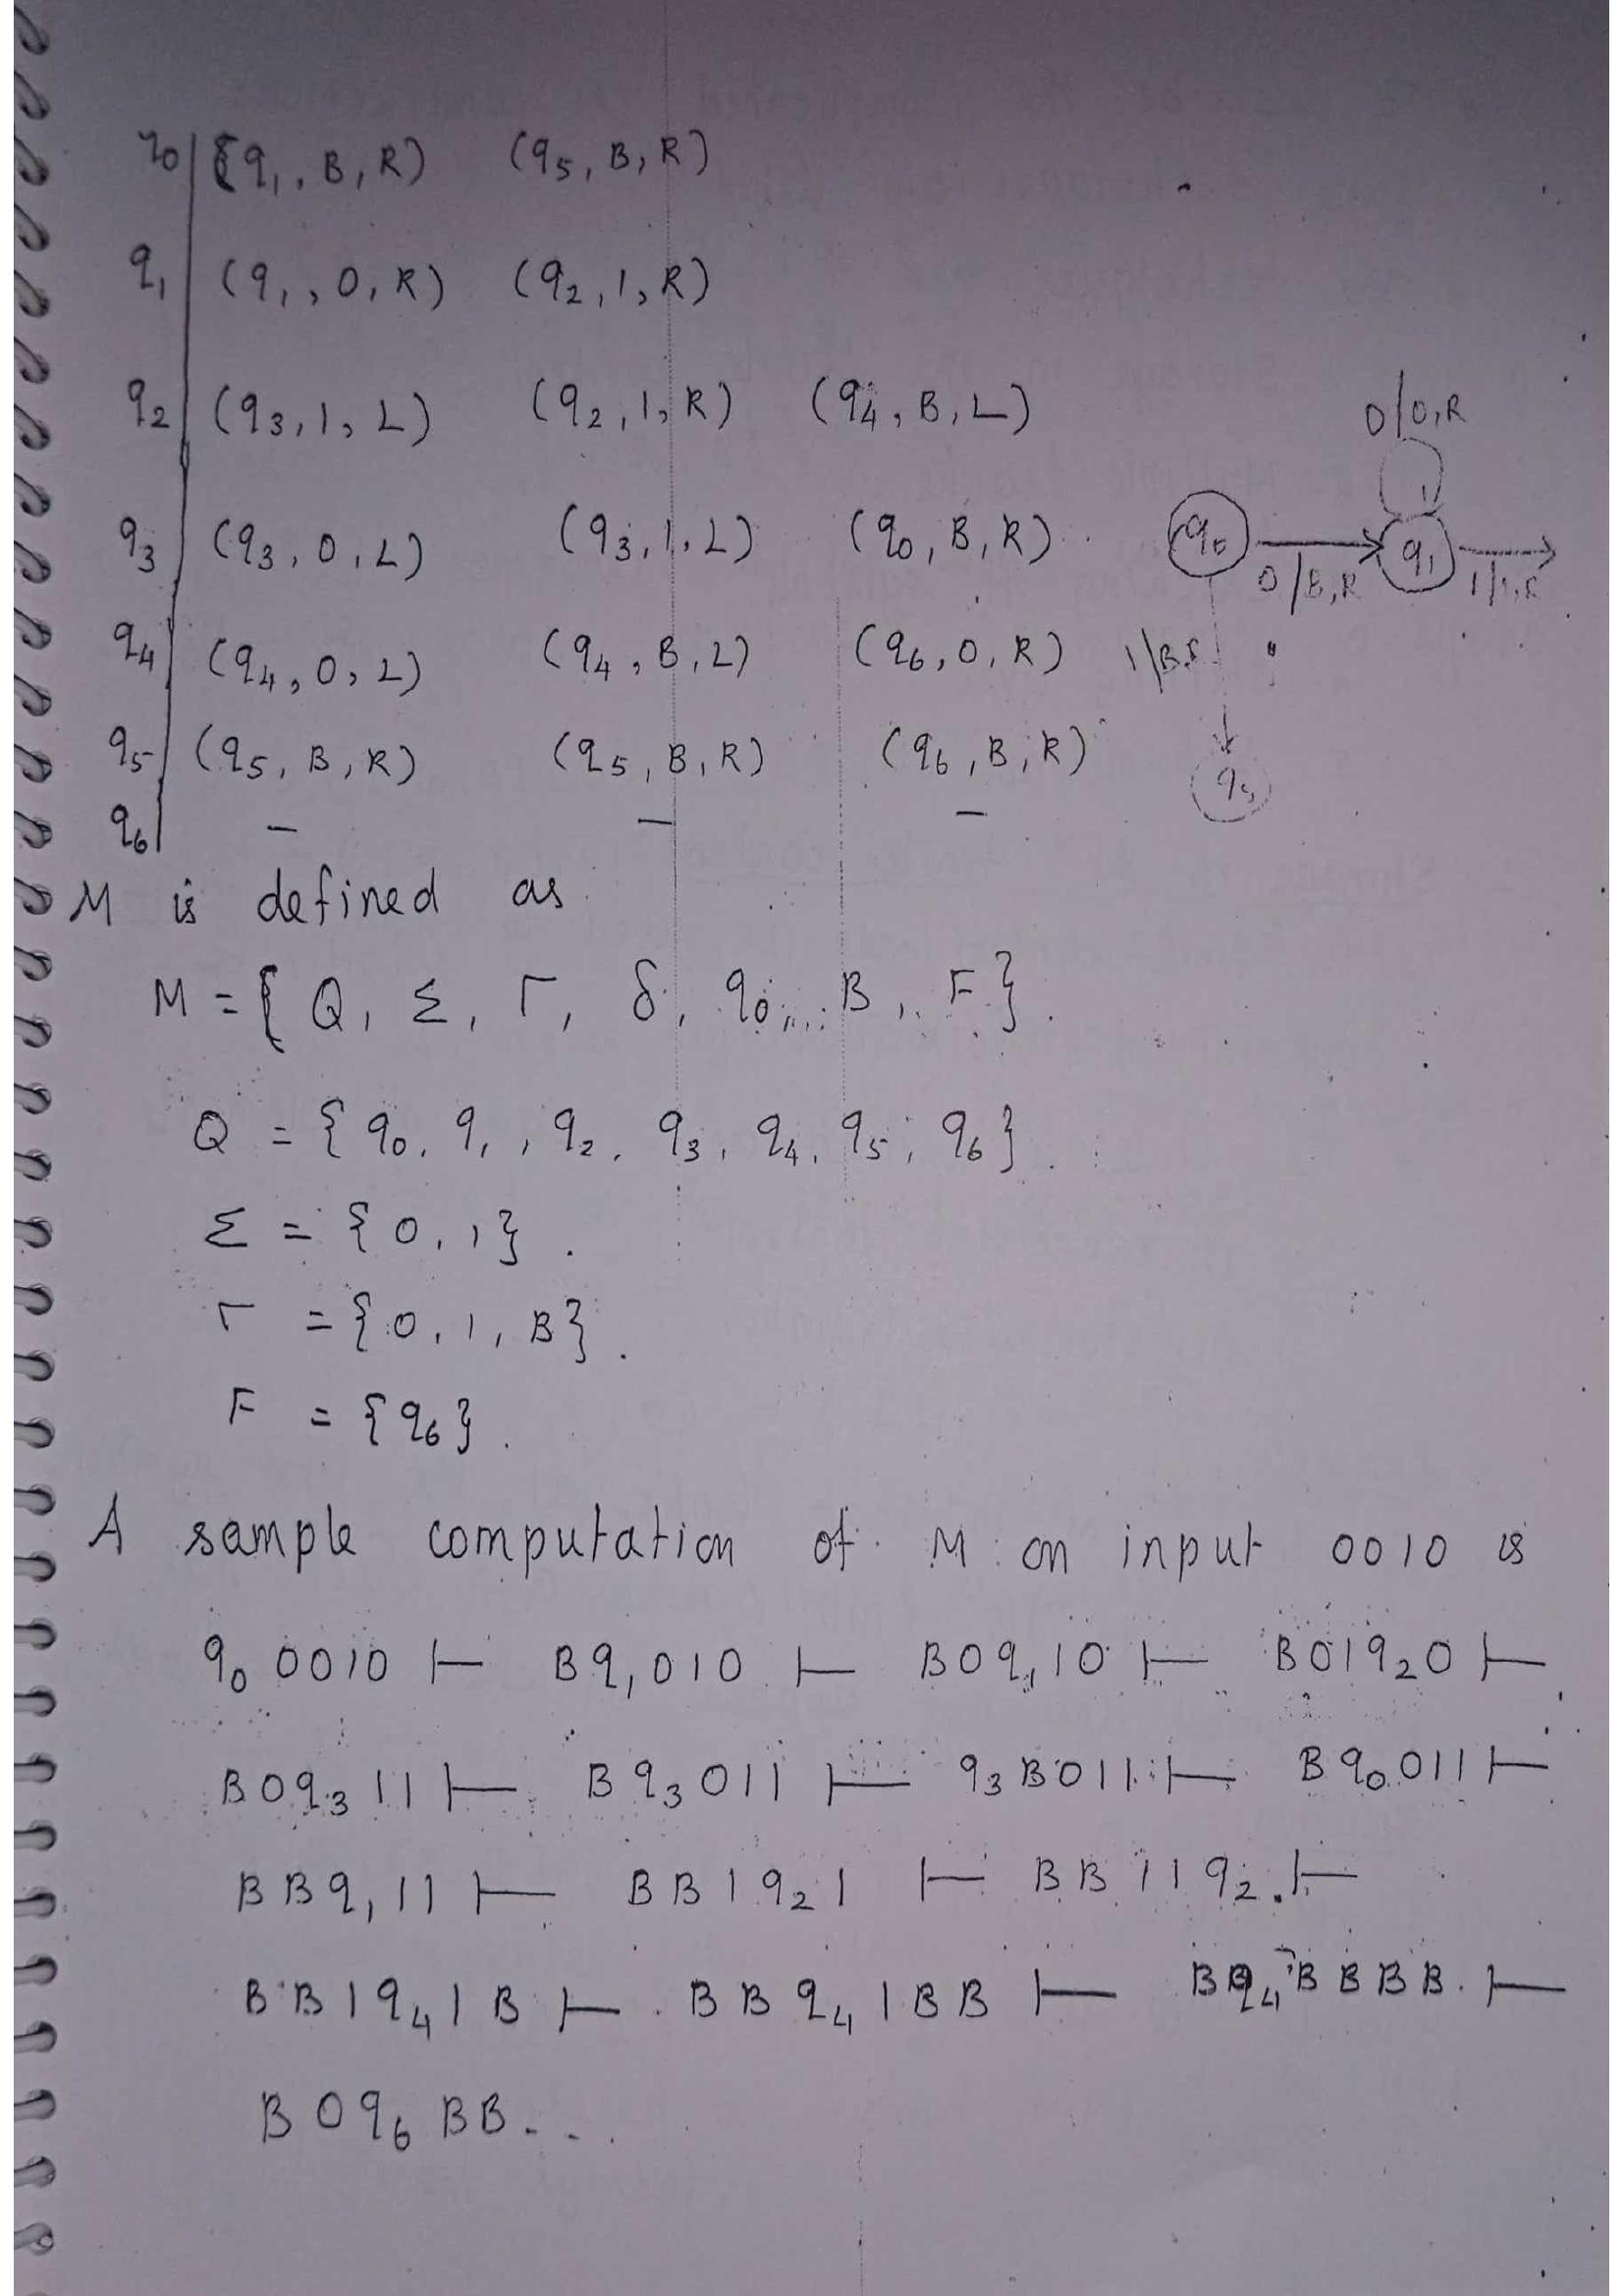 q0 (q1, B, R) (q5, B, R)
q1 (q1, 0, R) (q2, 1, R)
q2 (q3, 1, L) (q2, 1, R) (q4, B, L)
0/0,R
q3 (q3, 0, L) (q3, 1, L) (q0, B, R)
q0 q1
0/B,R 1/1,R
q4 (q4, 0, L) (q4, B, L) (q6, 0, R)
q5 (q5, B, R) (q5, B, R) (q6, B, R)
q5
q6 - - -
M is defined as
M = { Q, Σ, Γ, δ, q0, B, F }.
Q = { q0, q1, q2, q3, q4, q5, q6 }.
Σ = { 0, 1 }.
Γ = { 0, 1, B }.
F = { q6 }.
A sample computation of M on input 0010 is
q0 0010 ⊢ Bq1010 ⊢ B0q110 ⊢ B01q20 ⊢
B0q311 ⊢ Bq3011 ⊢ q3B011 ⊢ Bq0011 ⊢
BBq111 ⊢ BB1q21 ⊢ BB11q2 ⊢
BB1q41B ⊢ BBq41BB ⊢ Bq4BBBB ⊢
B0q6BB...